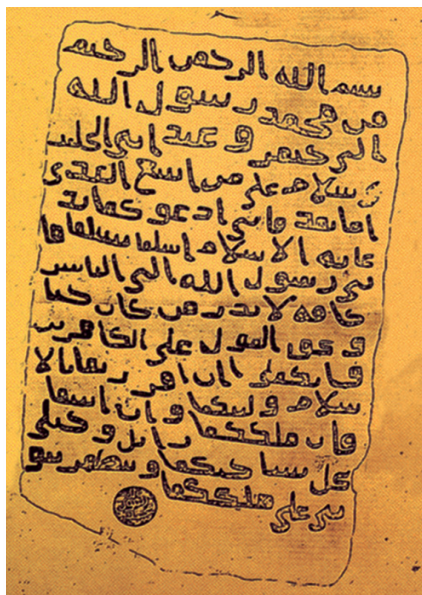 بسم الله الرحمن الرحيم
من محمد رسول الله
الى جيفر و عبد ابني الجلند
ى سلام على من اتبع الهدى
اما بعد فاني ادعوكما بد
عايه الاسلام اسلما تسلما فا
ني رسول الله الى الناس
كافه لانذر من كان حيا
ويحق القول على الكافرين
فانكما ان اقررتما بالا
سلام وليتكما وان ابيتما
فان ملككما زايل وخيلي
تحل بساحتكما وتظهر نبو
تي على ملككما